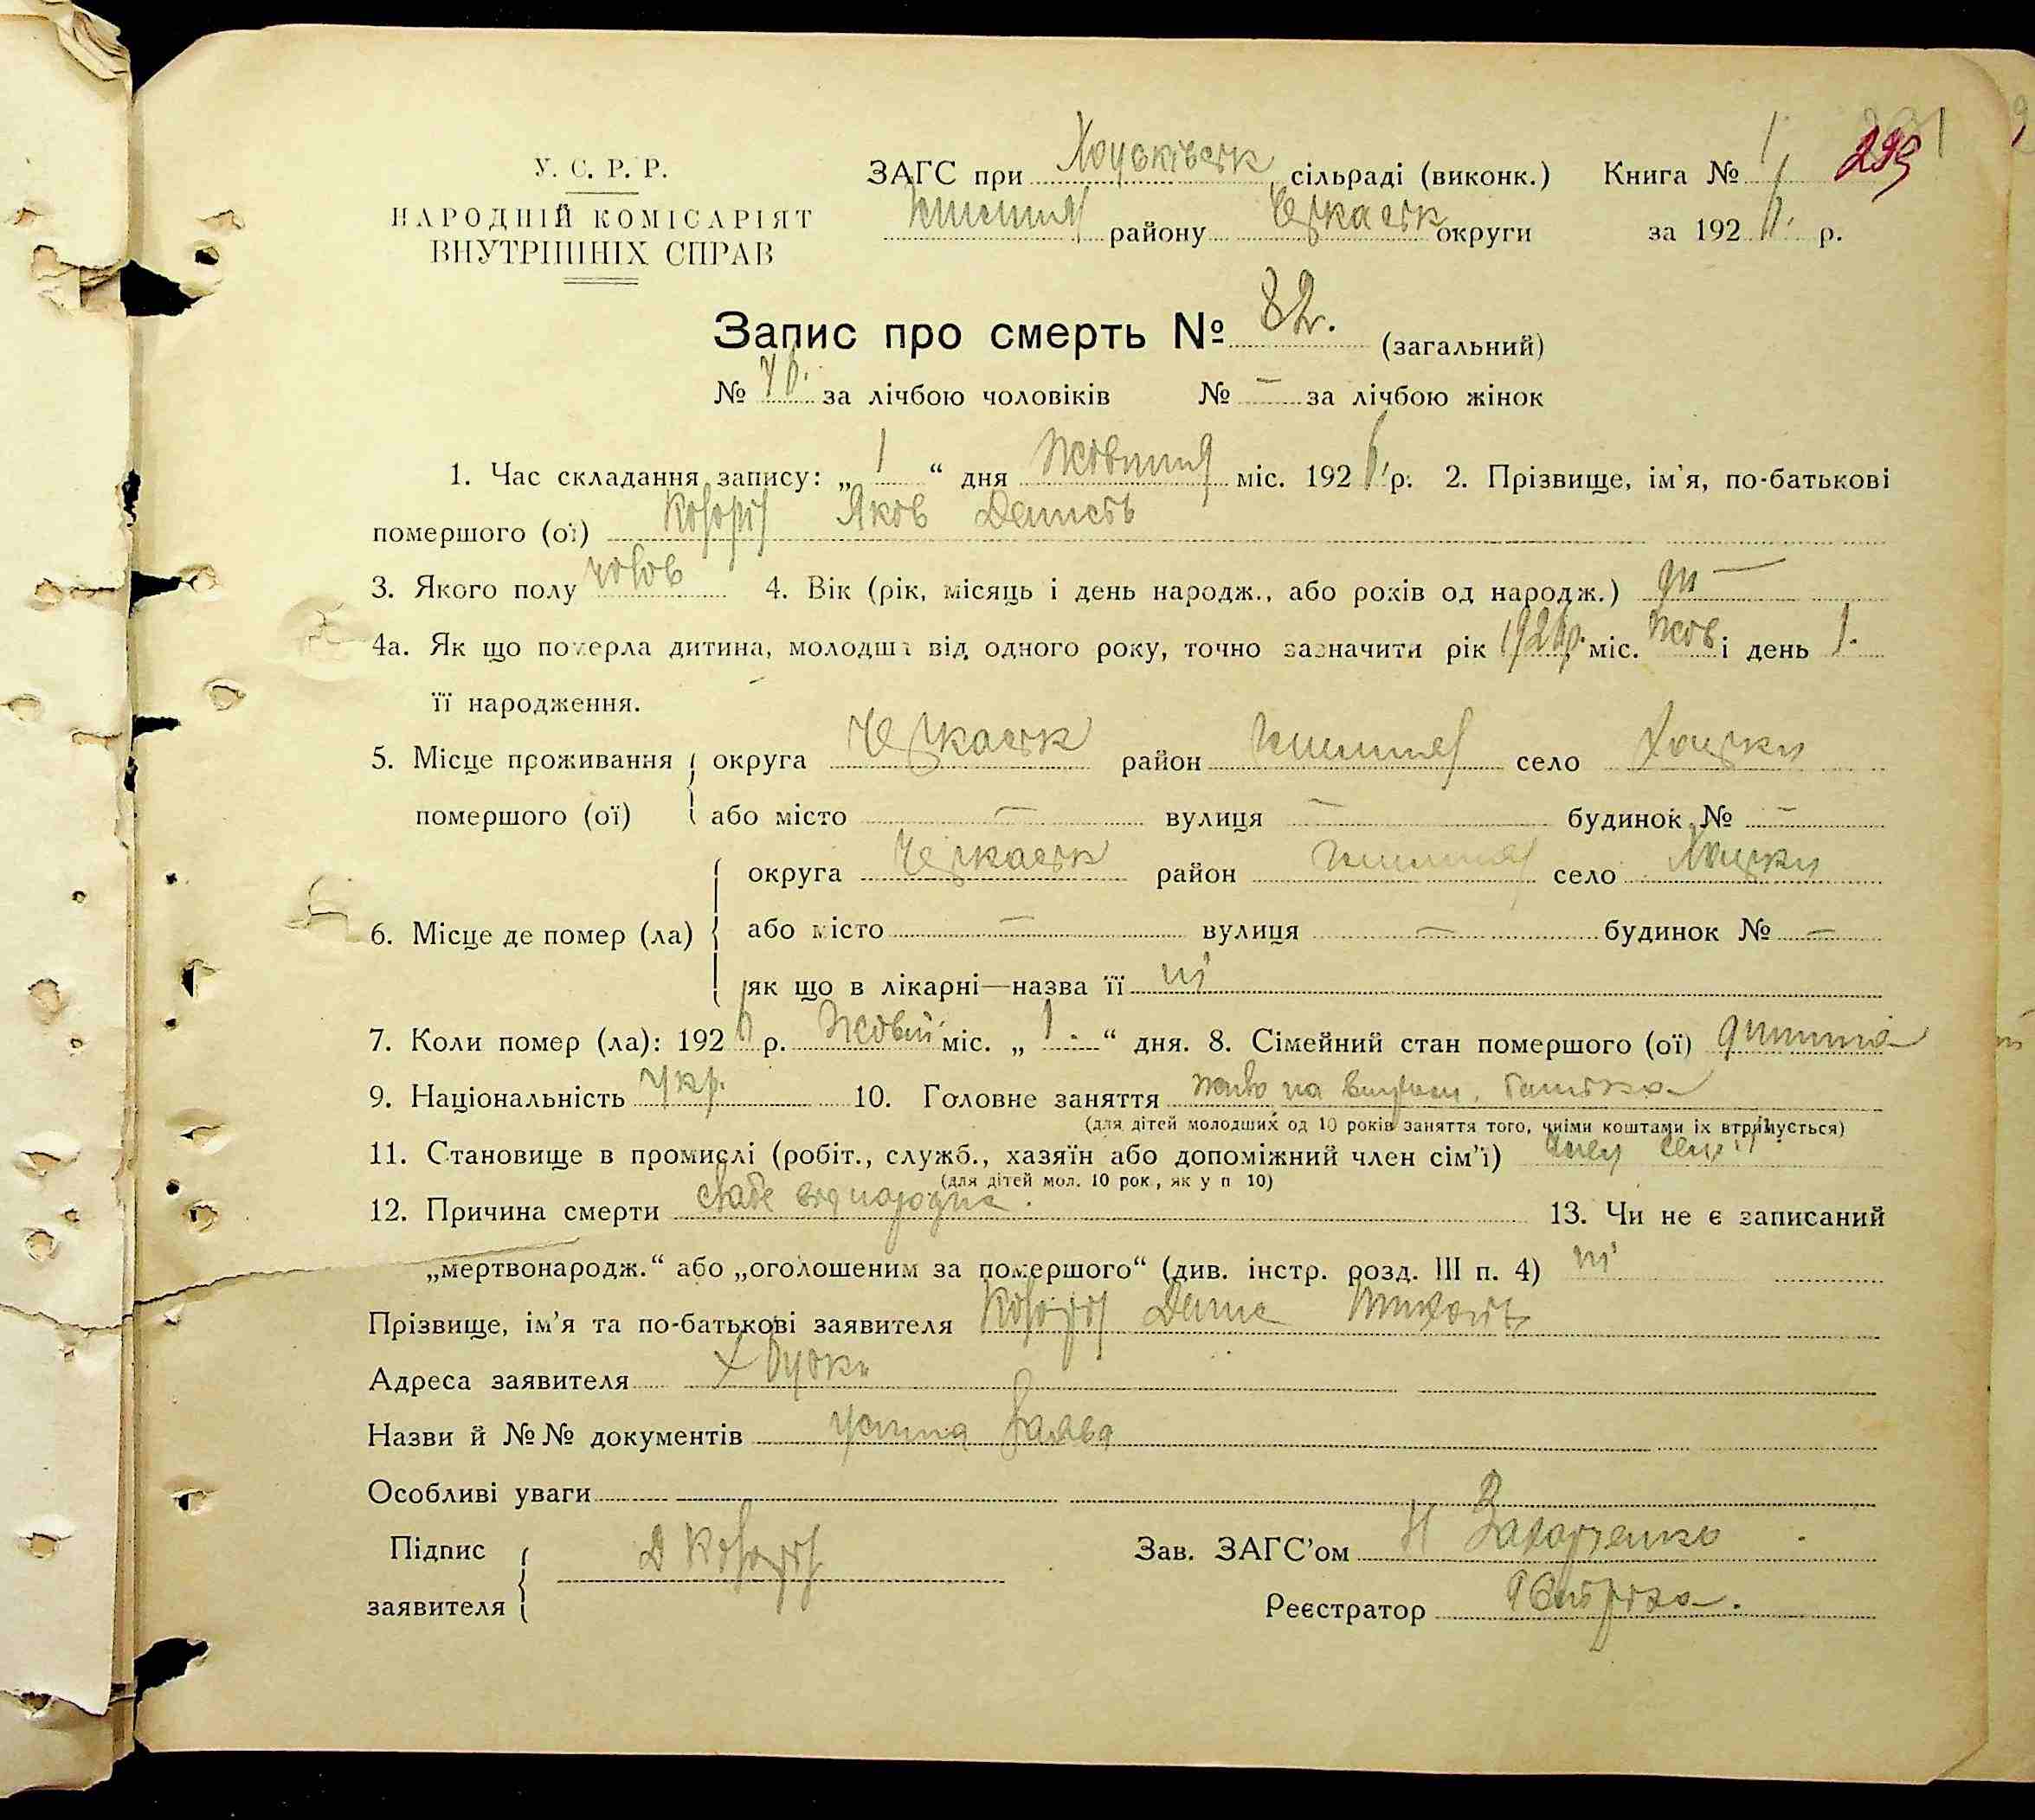 У. С. Р. Р.
НАРОДНІЙ КОМІСАРІЯТ
ВНУТРІШНІХ СПРАВ
ЗАГС при Хоцьківськ сільраді (виконк.) Книга № 1
295
району Черкаськ округи за 192 р.
Запис про смерть № 82. (загальний)
№ за лічбою чоловіків № – за лічбою жінок
1. Час складання запису: „ 1 “ дня Жовтня міс. 192 р. 2. Прізвище, ім'я, по-батькові
помершого (ої) Яков Денисов
3. Якого полу чолов 4. Вік (рік, місяць і день народж., або років од народж.) —
4а. Як що померла дитина, молодша від одного року, точно зазначити рік міс. Жов і день 1.
її народження.
5. Місце проживання округа Черкаськ район село Хоцьки
помершого (ої) або місто – вулиця – будинок № –
округа Черкаськ район село Хоцьки
6. Місце де помер (ла) або місто – вулиця – будинок № –
як що в лікарні—назва її ні
7. Коли помер (ла): 192 р. Жовтн міс. „ 1. “ дня. 8. Сімейний стан помершого (ої) дитина
9. Національність Укр. 10. Головне заняття на батька
(для дітей молодших од 10 років заняття того, чиїми коштами їх втримується)
11. Становище в промислі (робіт., служб., хазяїн або допоміжний член сім'ї) член сем'ї
(для дітей мол. 10 рок., як у п 10)
12. Причина смерти слабе від народжа. 13. Чи не є записаний
„мертвонародж.“ або „оголошеним за помершого“ (див. інстр. розд. III п. 4) ні
Прізвище, ім'я та по-батькові заявителя Денис
Адреса заявителя Хоцьки
Назви й №№ документів Устна заява
Особливі уваги
Підпис
заявителя Д
Зав. ЗАГС'ом Н Захарченко
Реєстратор